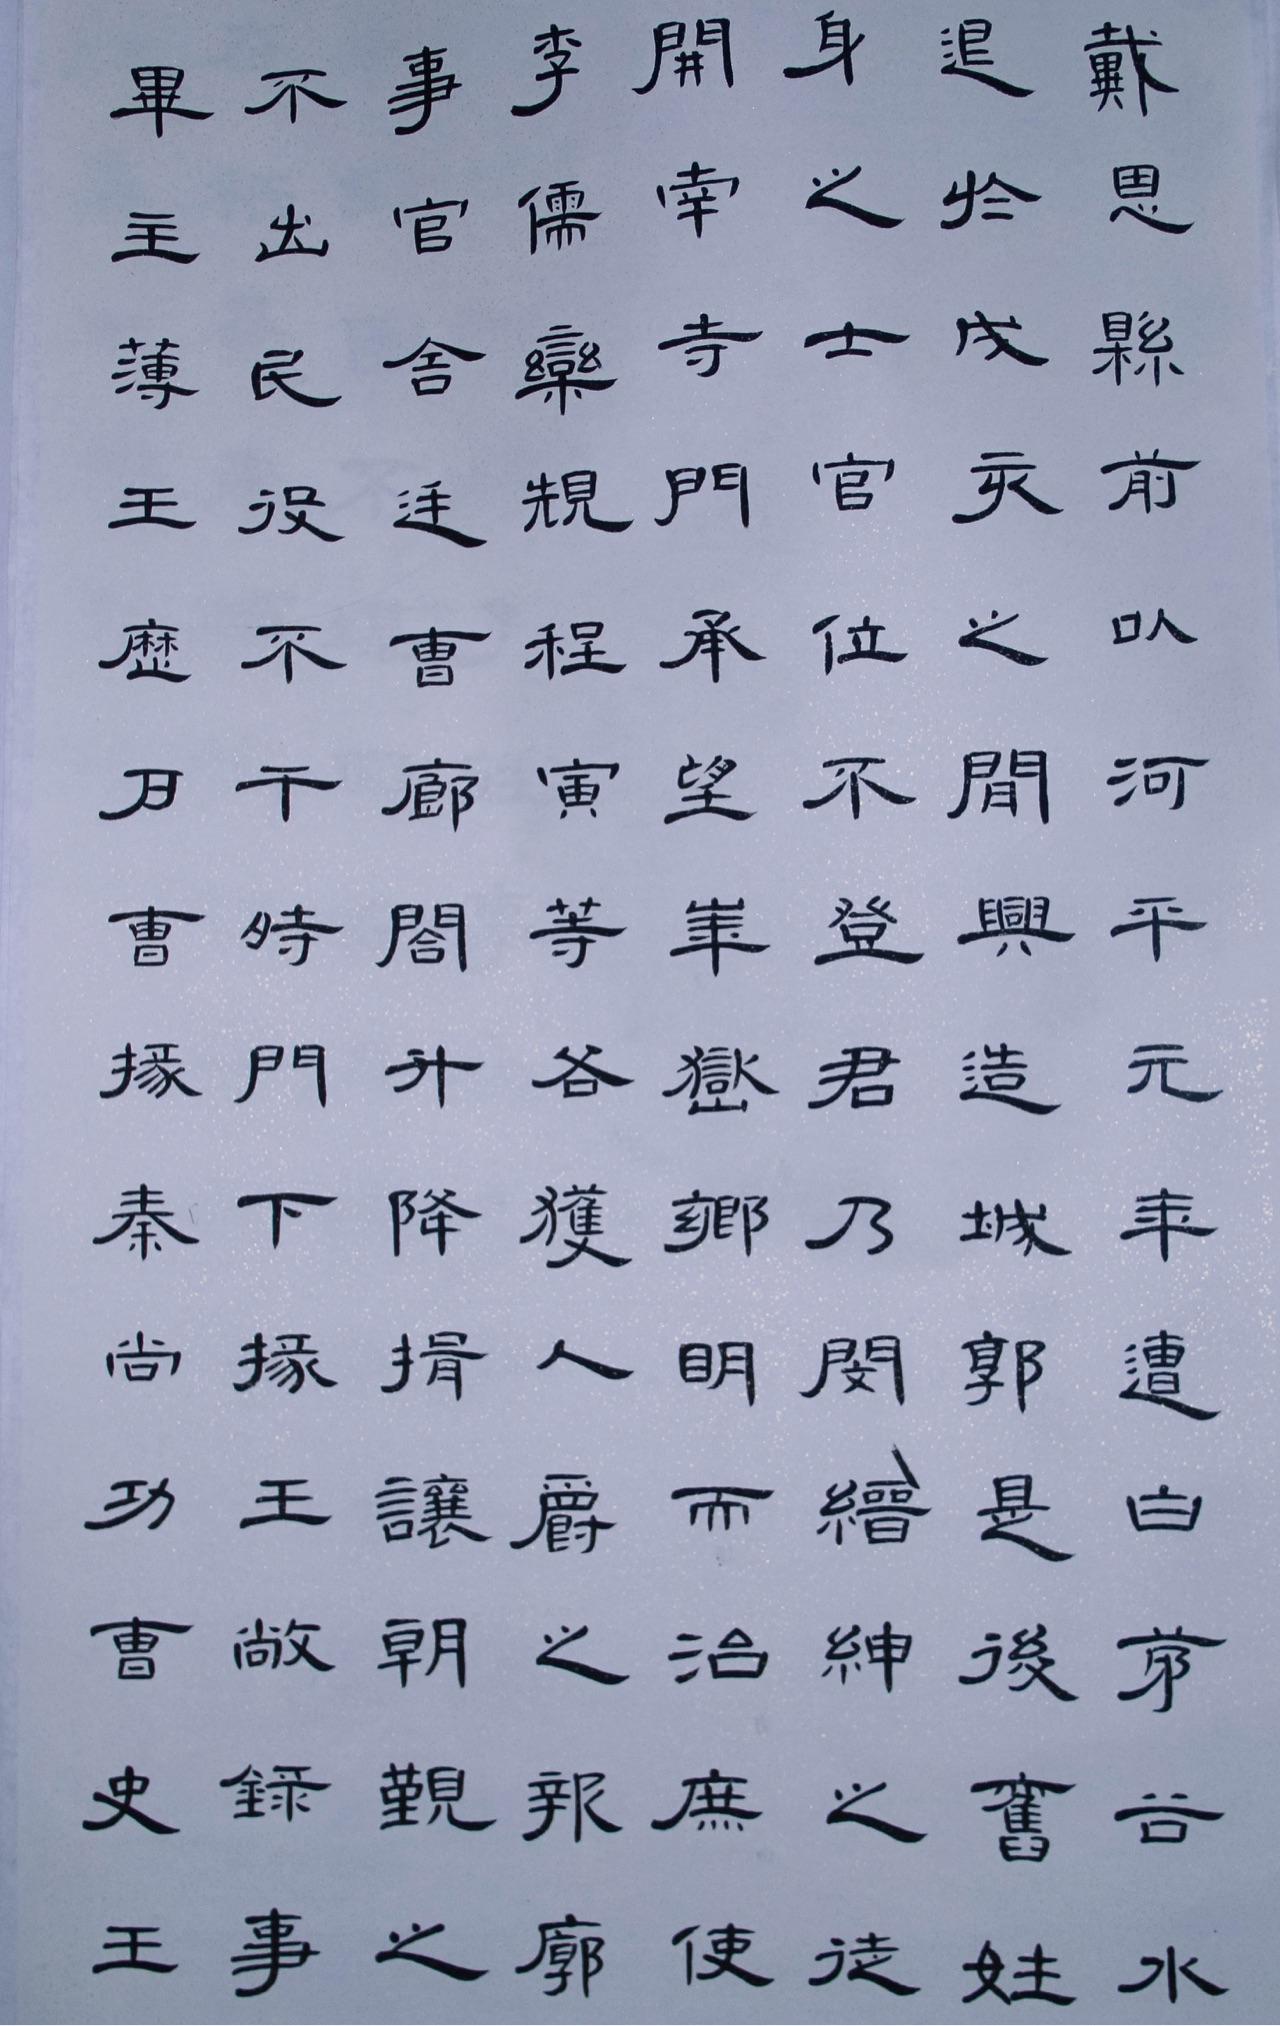 戴恩縣前以河平元年遭白茅谷水
退於戌亥之間興造城郭是後舊姓
身之士官位不登君乃閔縉紳之徒
開南寺門承望華嶽鄉明而治庶使
李儒欒規程寅等各獲人爵之報廓
事官舍廷曹廊閤升降揖讓朝覲之
不出民役不干時門下掾王敞錄事
畢主薄王歷戶曹掾秦尚功曹史王